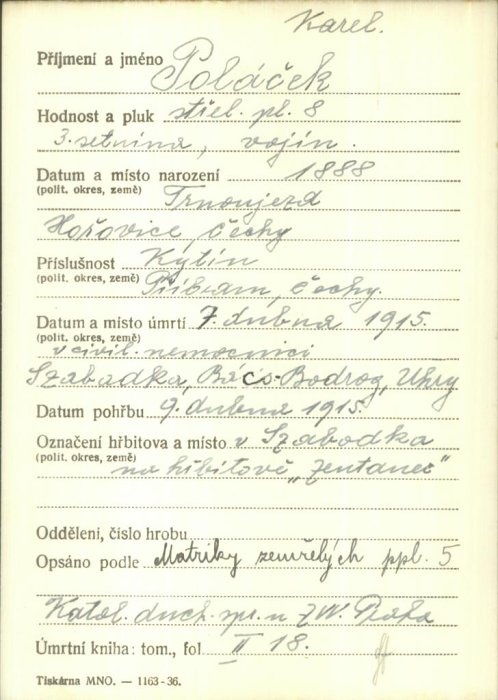 Karel.
Příjmení a jméno Poláček
Hodnost a pluk střel. pl. 8
3. setnina, vojín.
Datum a místo narození 1888
(polit. okres, země) Trnoujezd
Hořovice, Čechy
Příslušnost Kytín
(polit. okres, země) Příbram, Čechy.
Datum a místo úmrtí 7. dubna 1915.
(polit. okres, země)
v civil. nemocnici
Szabadka, Bács-Bodrog, Uhry
Datum pohřbu 9. dubna 1915.
Označení hřbitova a místo v Szabadka
(polit. okres, země) na hřbitově „Zentaner"
Oddělení, číslo hrobu
Opsáno podle Matriky zemřelých ppl. 5
Katol. duch. spr. u ZW. Praha
Úmrtní kniha: tom., fol II 18.
Tiskárna MNO. — 1163-36.